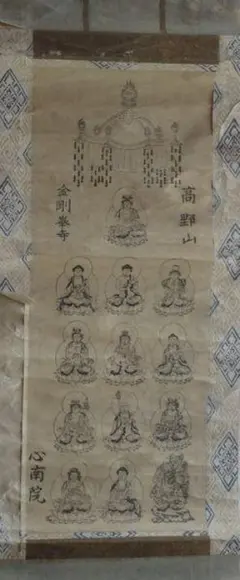 高野山
金剛峯寺
心南院